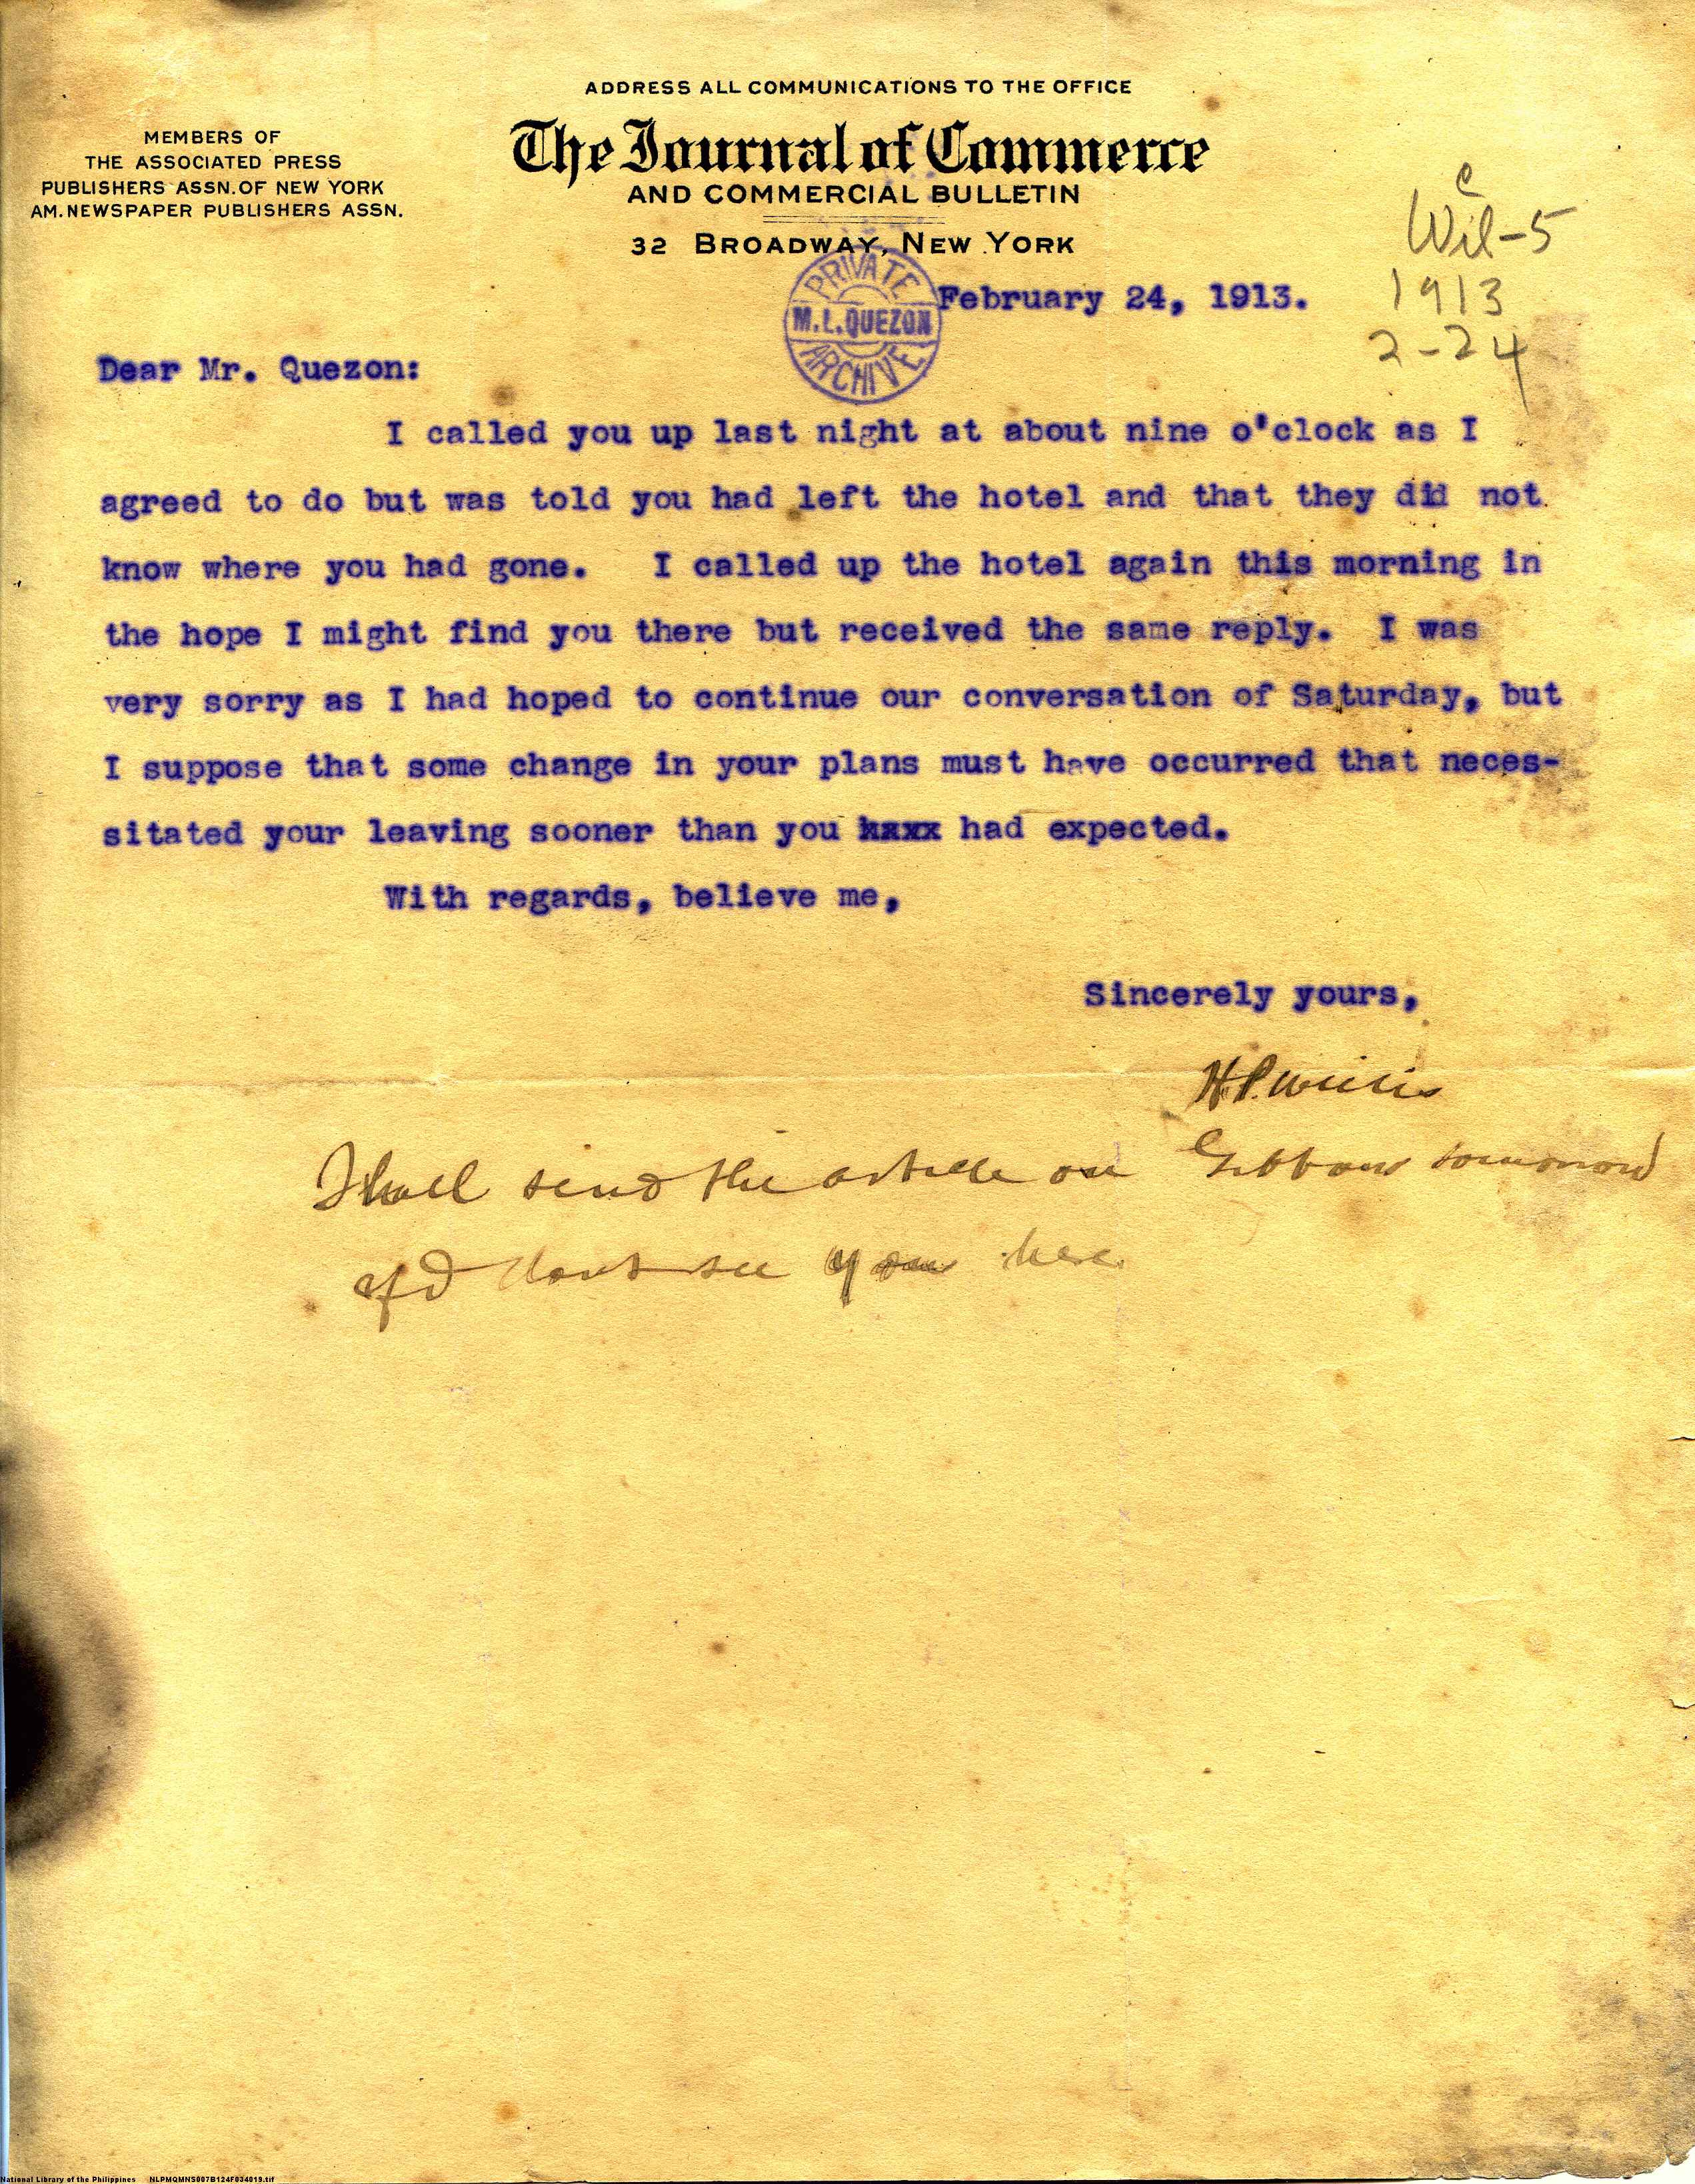 ADDRESS ALL COMMUNICATIONS TO THE OFFICE
MEMBERS OF
THE ASSOCIATED PRESS
PUBLISHERS ASSN. OF NEW YORK
AM. NEWSPAPER PUBLISHERS ASSN.
The Journal of Commerce
AND COMMERCIAL BULLETIN
32 BROADWAY, NEW YORK
c
Wil-5
1913
2-24
PRIVATE
M.L.QUEZON
ARCHIVE
February 24, 1913.
Dear Mr. Quezon:
I called you up last night at about nine o'clock as I
agreed to do but was told you had left the hotel and that they did not
know where you had gone. I called up the hotel again this morning in
the hope I might find you there but received the same reply. I was
very sorry as I had hoped to continue our conversation of Saturday, but
I suppose that some change in your plans must have occurred that neces-
sitated your leaving sooner than you had expected.
With regards, believe me,
Sincerely yours,
H.P. Willis
I shall send the article on Gibbons tomorrow
if I don't see you here.
National Library of the Philippines NLPMQMNS007B124F034019.tif